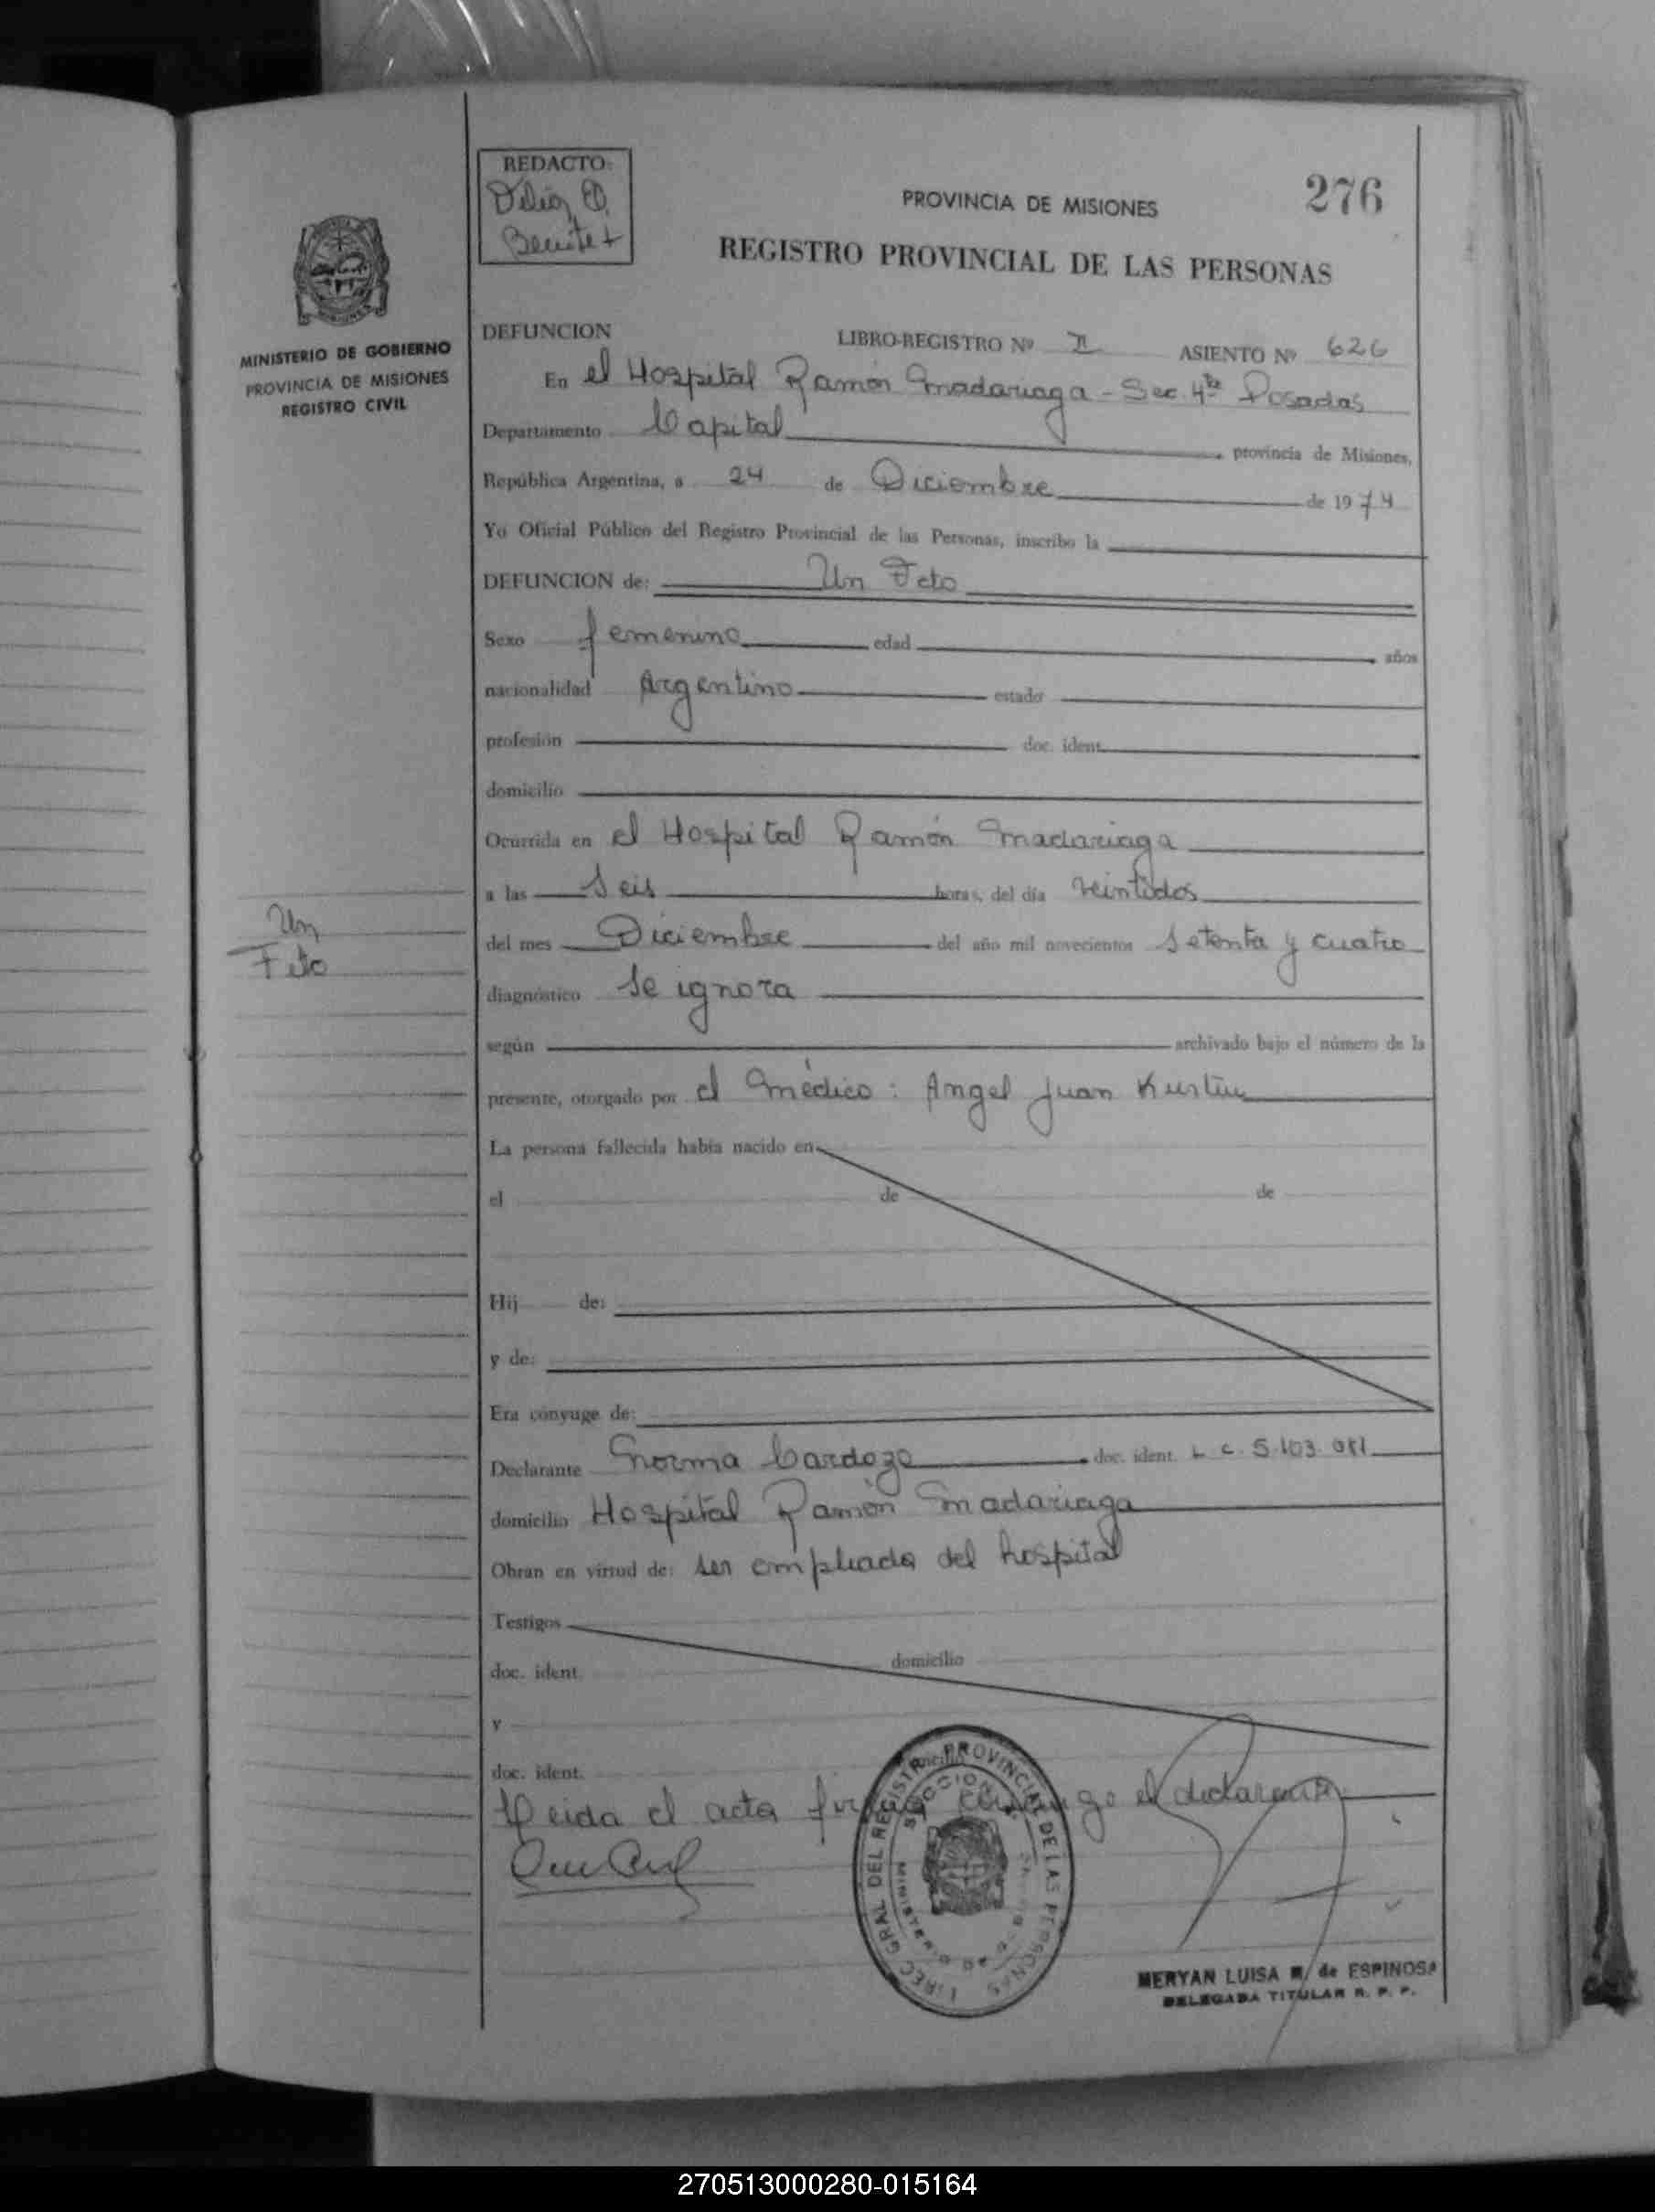 REDACTO:
Delia O.
Benitez
PROVINCIA DE MISIONES
276
REGISTRO PROVINCIAL DE LAS PERSONAS
MINISTERIO DE GOBIERNO
PROVINCIA DE MISIONES
REGISTRO CIVIL
DEFUNCION LIBRO-REGISTRO Nº II ASIENTO Nº 626
En el Hospital Ramón Madariaga - Sec. 4ta Posadas
Departamento Capital provincia de Misiones,
República Argentina, a 24 de Diciembre de 1974
Yo Oficial Público del Registro Provincial de las Personas, inscribo la
DEFUNCION de: Un Feto
Sexo femenino edad años
nacionalidad Argentino estado
profesión doc. ident.
domicilio
Ocurrida en el Hospital Ramón Madariaga
a las Seis horas, del día veintidos
Un
Feto
del mes Diciembre del año mil novecientos Setenta y cuatro
diagnóstico Se ignora
según archivado bajo el número de la
presente, otorgado por el Médico: Angel Juan
La persona fallecida había nacido en
el de de
Hij de:
y de:
Era cónyuge de:
Declarante Norma Cardozo doc. ident. L C. 5.103.081
domicilio Hospital Ramón Madariaga
Obran en virtud de: ser empleada del hospital
Testigos
doc. ident. domicilio
y
doc. ident. domicilio
Leida el acta firma conmigo el declarante
DIREC GRAL DEL REGISTRO PROVINCIAL DE LAS PERSONAS
SECCION
MINISTERIO DE GOBIERNO
MERYAN LUISA M. de ESPINOSA
DELEGADA TITULAR R. P. P.
270513000280-015164